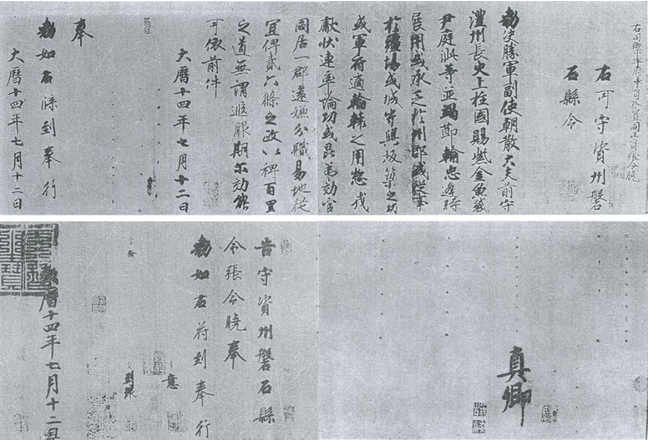 右司禦率府率員外同正員張令曉
右可守資州磐
石縣令
勅決勝軍副使朝散大夫前守
澧州長史上柱國賜紫金魚袋
尹庭泚等並竭節輸忠逢時
展用或承乏於州郡或從事
於疆場或城守興板築之功
或軍府適輪轅之用惣戎
獻狀連率論功或昆弟効官
同居一郡遠嫌分職易地從
宜俾貳六條之政以裨百里
之道無謂遐服期尓効能
可依前件
大曆十四年七月十二日
奉
勅如右牒到奉行
大曆十四年七月十二日
真卿
告守資州磐石縣
令張令曉奉
勅如右符到奉行
意
大曆十四年七月十二日